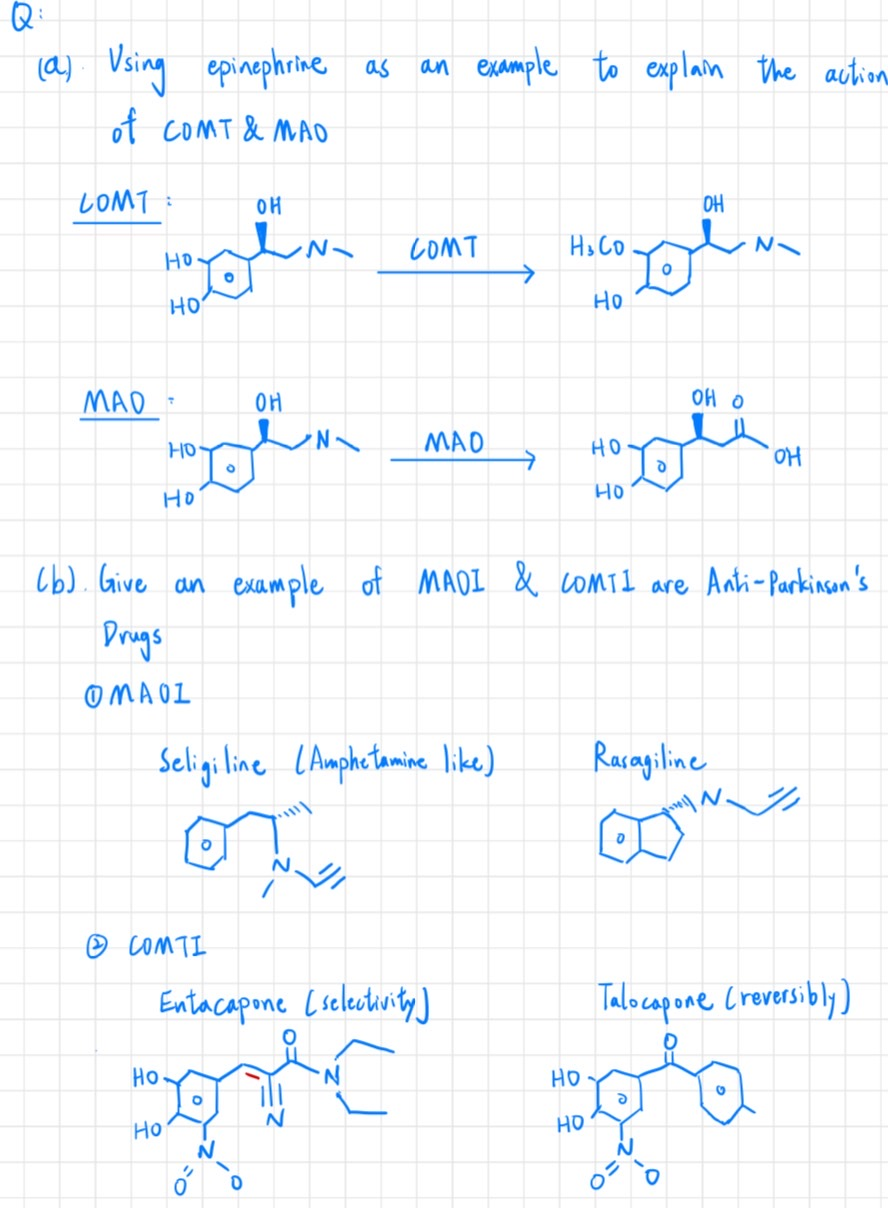 Q:
(a). Using epinephrine as an example to explain the action
of COMT & MAO
COMT :
OH
HO
HO
N
COMT
OH
H3CO
HO
N
MAO :
OH
HO
HO
N
MAO
OH O
HO
HO
OH
(b). Give an example of MAOI & COMTI are Anti-Parkinson's
Drugs
① MAOI
Seligiline (Amphetamine like) Rasagiline
N
N
② COMTI
Entacapone (selectivity) Talocapone (reversibly)
O
HO
HO
N
N
N
O
O
O
HO
HO
N
O
O